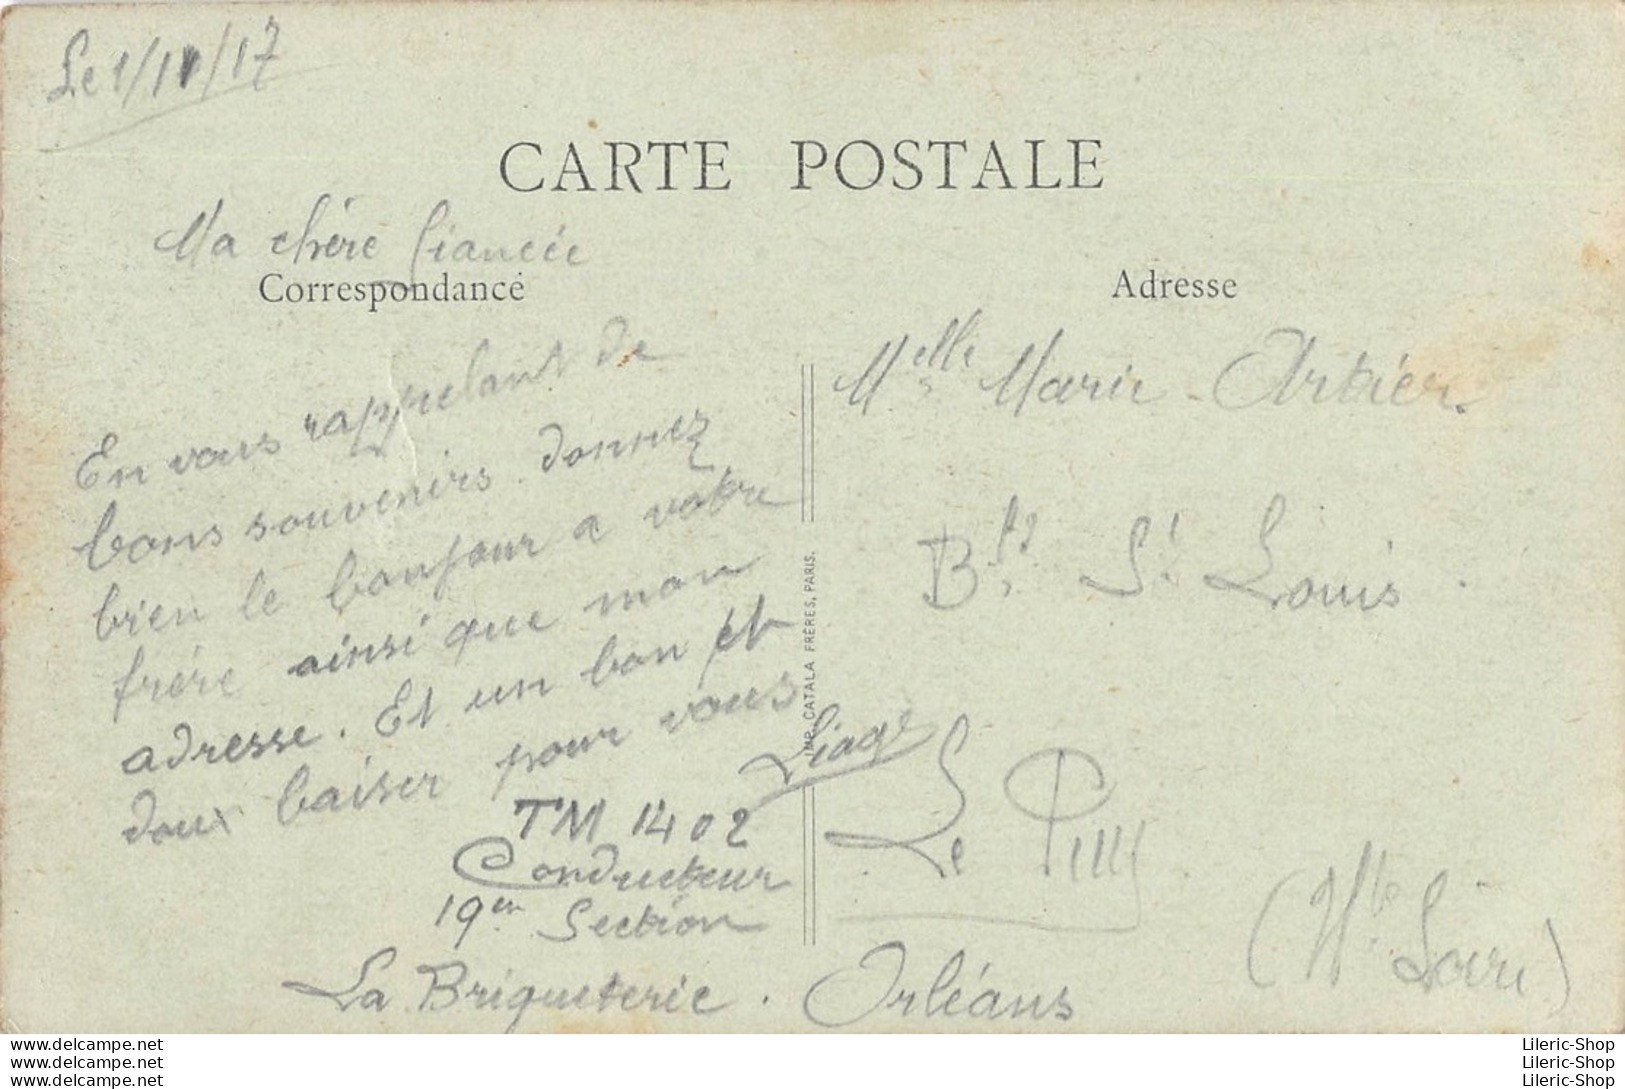 Le 1/11/17
CARTE POSTALE
Ma chère fiancée
Correspondance
En vous rappelant de
bons souvenirs. donnez
bien le bonjour a votre
frère ainsi que mon
adresse. Et un bon et
doux baiser pour vous
Liage
TM 1402
Conducteur
19em Section
La Briqueterie. Orléans
IMP. CATALA FRÈRES, PARIS.
Adresse
Melle Marie Arbier.
Bd St Louis.
Le Puy
(Hte Loire)
www.delcampe.net
www.delcampe.net
www.delcampe.net
Lileric-Shop
Lileric-Shop
Lileric-Shop